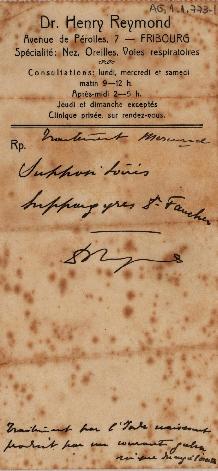 AG. 1.1.773-1
Dr. Henry Reymond
Avenue de Pérolles, 7 — FRIBOURG
Spécialité: Nez, Oreilles, Voies respiratoires
Consultations: lundi, mercredi et samedi
matin 9—12 h.
Après-midi 2—5 h.
Jeudi et dimanche exceptés
Clinique privée, sur rendez-vous.
Traitement
Rp.
Suppositoires
Dr Faucher
Traitement par l'Iode naissant
produit par un courant galva
nique